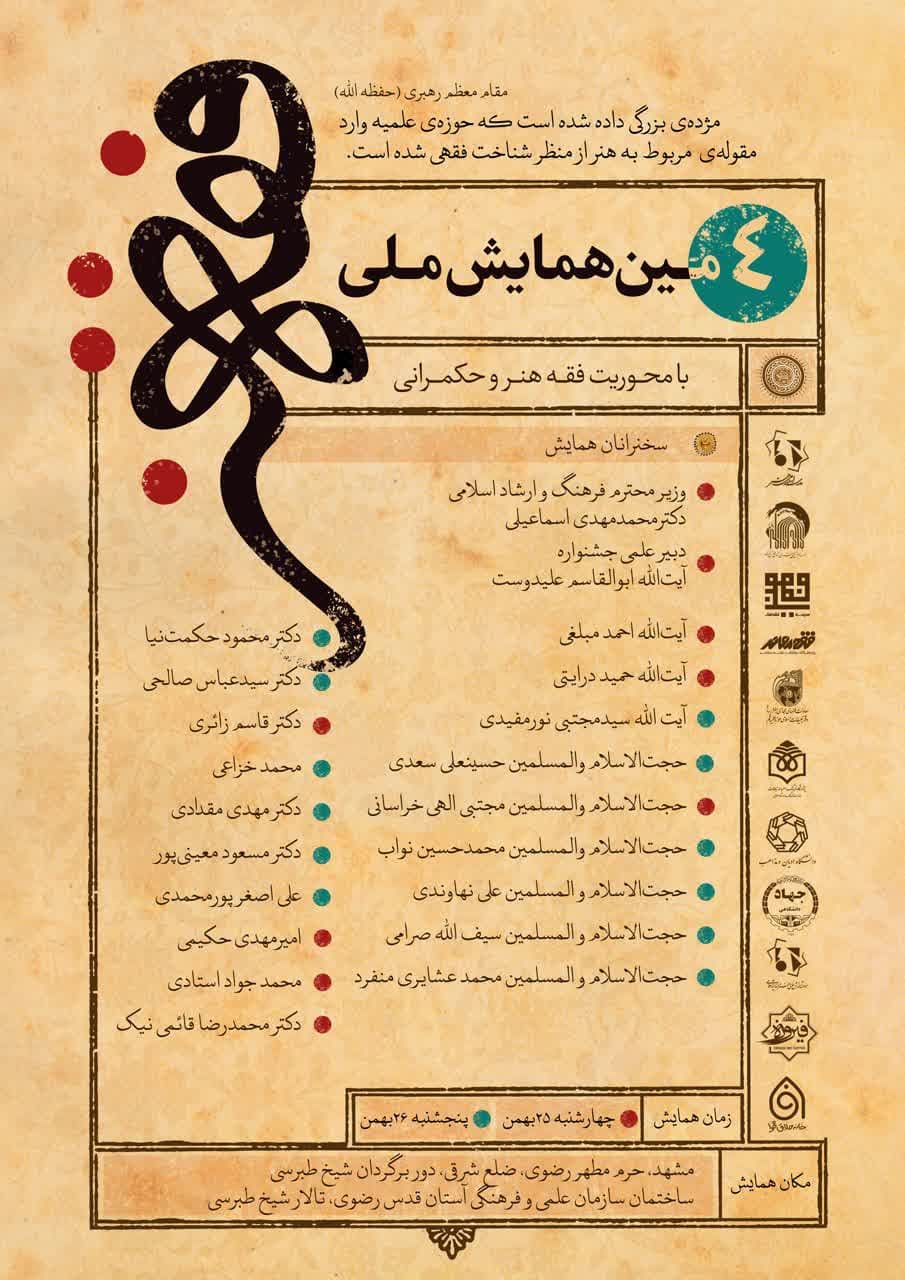 مقام معظم رهبری (حفظه الله)
مژده‌ی بزرگی داده شده است که حوزه‌ی علمیه وارد
مقوله‌ی مربوط به هنر از منظر شناخت فقهی شده است.
۴مین همایش ملی
فقه هنر
با محوریت فقه هنر و حکمرانی
سخنرانان همایش
وزیر محترم فرهنگ و ارشاد اسلامی
دکتر محمدمهدی اسماعیلی
دبیر علمی جشنواره
آیت‌الله ابوالقاسم علیدوست
آیت‌الله احمد مبلغی
آیت‌الله حمید درایتی
آیت الله سیدمجتبی نورمفیدی
حجت‌الاسلام والمسلمین حسینعلی سعدی
حجت‌الاسلام والمسلمین مجتبی الهی خراسانی
حجت‌الاسلام والمسلمین محمدحسین نواب
حجت‌الاسلام و المسلمین علی نهاوندی
حجت‌الاسلام و المسلمین سیف الله صرامی
حجت‌الاسلام و المسلمین محمد عشایری منفرد
دکتر محمود حکمت‌نیا
دکتر سیدعباس صالحی
دکتر قاسم زائری
محمد خزاعی
دکتر مهدی مقدادی
دکتر مسعود معینی‌پور
علی اصغر پورمحمدی
امیرمهدی حکیمی
محمد جواد استادی
دکتر محمدرضا قائمی نیک
دانشگاه ادیان و مذاهب
جهاد
دانشگاهی
فیروزه
زمان همایش
چهارشنبه ۲۵بهمن
پنجشنبه ۲۶بهمن
مکان همایش
مشهد، حرم مطهر رضوی، ضلع شرقی، دور برگردان شیخ طبرسی
ساختمان سازمان علمی و فرهنگی آستان قدس رضوی، تالار شیخ طبرسی